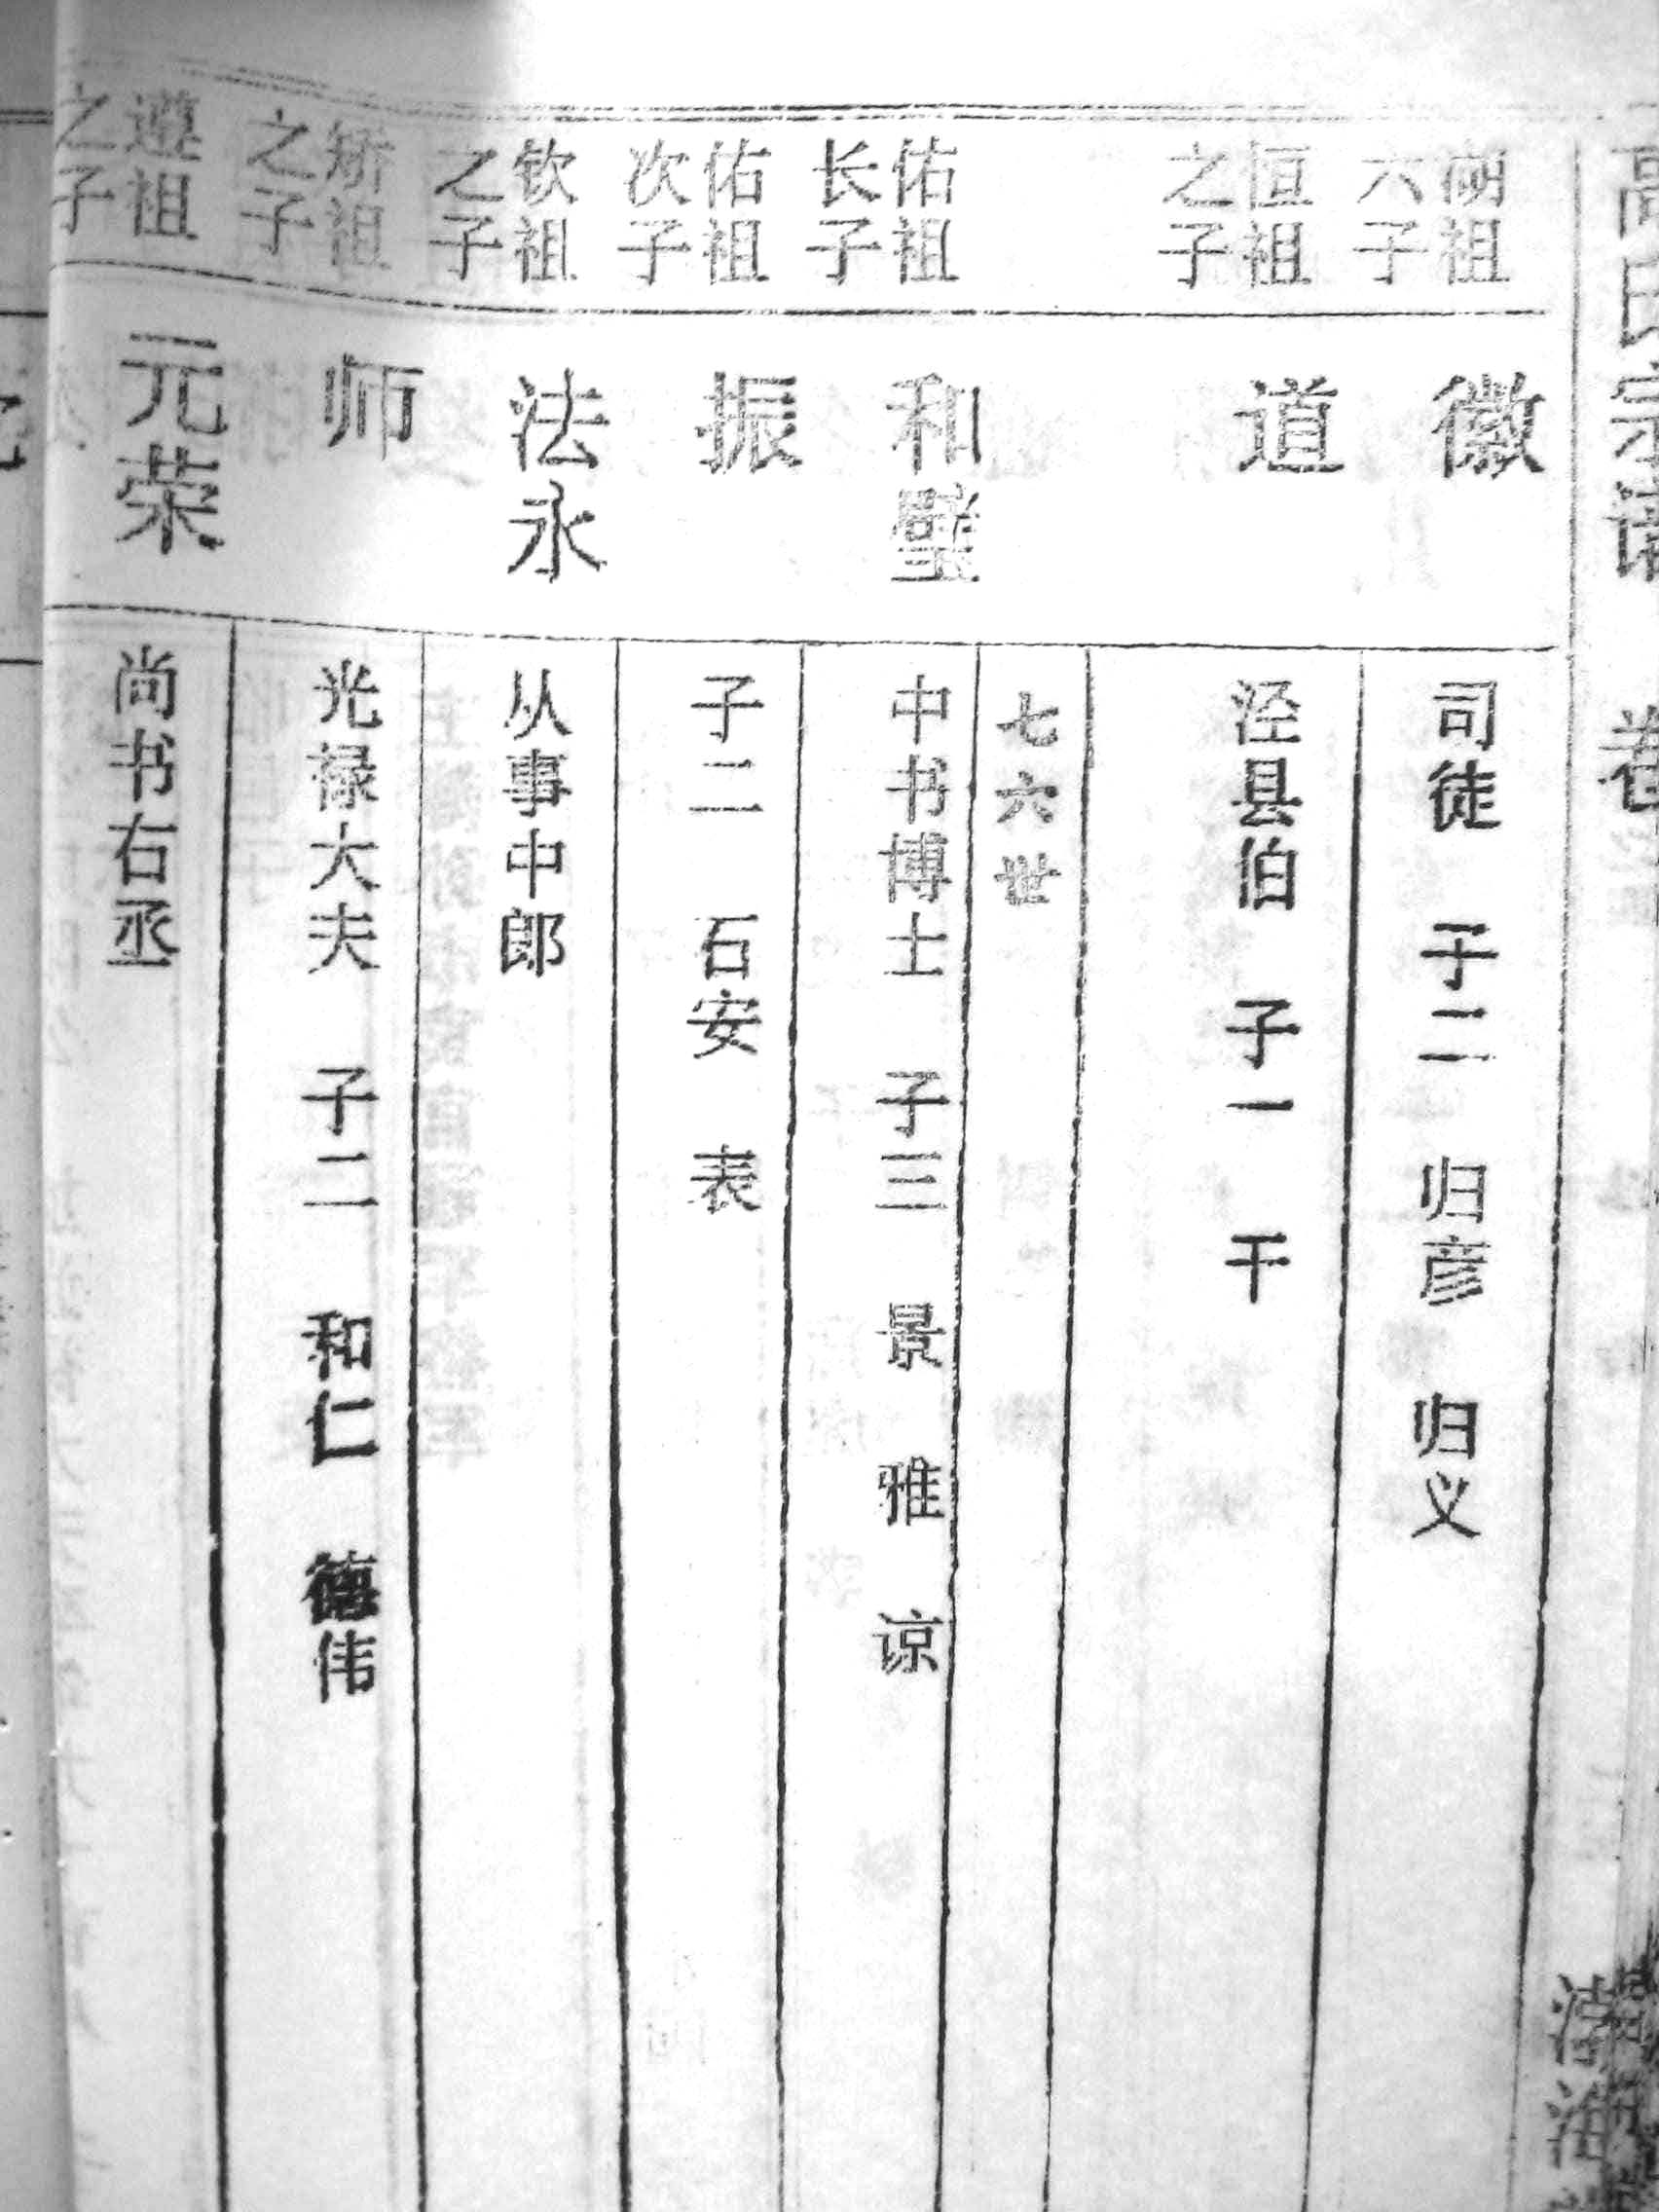 高氏宗谱 卷
渤海
湖祖
六子
徽
司徒 子二 归彦 归义
恒祖
之子
道
泾县伯 子一 干
七六世
佑祖
长子
和璧
中书博士 子三 景 雅 谅
佑祖
次子
振
子二 石安 表
钦祖
之子
法永
从事中郎
矫祖
之子
师
光禄大夫 子二 和仁 德伟
遵祖
之子
元荣
尚书右丞